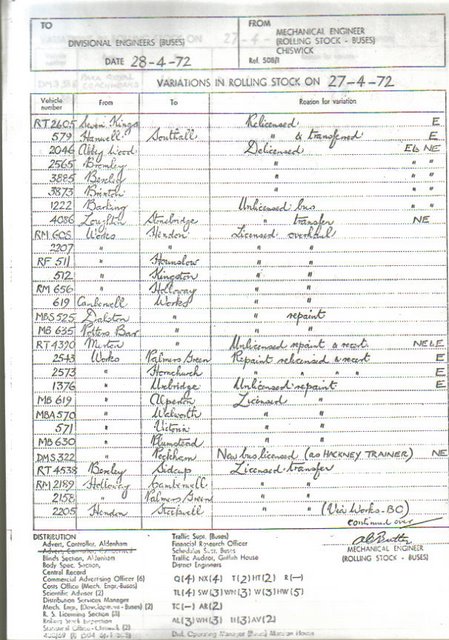 TO
FROM
DIVISIONAL ENGINEERS (BUSES)
MECHANICAL ENGINEER
(ROLLING STOCK - BUSES)
CHISWICK
DATE 28-4-72
Ref. 508/1
VARIATIONS IN ROLLING STOCK ON 27-4-72
Vehicle number From To Reason for variation
RT 2605 Seven Kings Relicensed E
579 Hanwell Southall " & transferred E
2046 Abbey Wood Delicensed NE
2565 Bromley " " "
3885 Bexley " " "
3873 Brixton " " "
1222 Barking Unlicensed bus
4086 Loughton Stonebridge " transfer NE
RM 605 Works Hendon Licensed overhaul
2207 " " " "
RF 511 " Hounslow " "
512 " Kingston " "
RM 656 " Holloway " "
619 Camberwell Works "
MBS 525 Dalston " " repaint
MB 635 Potters Bar " " "
RT 4390 Merton " Unlicensed repaint & recert
2543 Works Palmers Green Repaint relicensed & recert E
2573 " Hornchurch " " " " E
1376 " Uxbridge Unlicensed repaint E
MB 619 " Alperton Licensed "
MBA 570 " Walworth " "
571 " Victoria " "
MB 630 " Plumstead " "
DMS 322 " Peckham New bus licensed (as HACKNEY TRAINER) NE
RT 4538 Bexley Sidcup Licensed transfer
RM 2189 Holloway Camberwell " "
2158 " Palmers Green " "
2205 Hendon Stockwell " " (Via Works - BC)
continued over
MECHANICAL ENGINEER
(ROLLING STOCK - BUSES)
DISTRIBUTION
Advert. Controller, Aldenham
Blinds Section, Aldenham
Body Spec. Section,
Central Record
Commercial Advertising Officer (6)
Costs Office (Mech. Engr.-Buses)
Scientific Adviser (2)
Distribution Services Manager
Mech. Engr. (Development - Buses) (2)
R. S. Licensing Section (3)
Rolling Stock Inspector
Traffic Supt. (Buses)
Financial Research Officer
Schedules Supt. Buses
Traffic Auditor, Griffith House
District Engineers
Q(4) NX(4) T(2) HT(2) R(—)
TL(4) SW(3) WH(3) W(3) HW(5)
TC(—) AR(2)
AL(3) WH(3) H(3) AV(2)